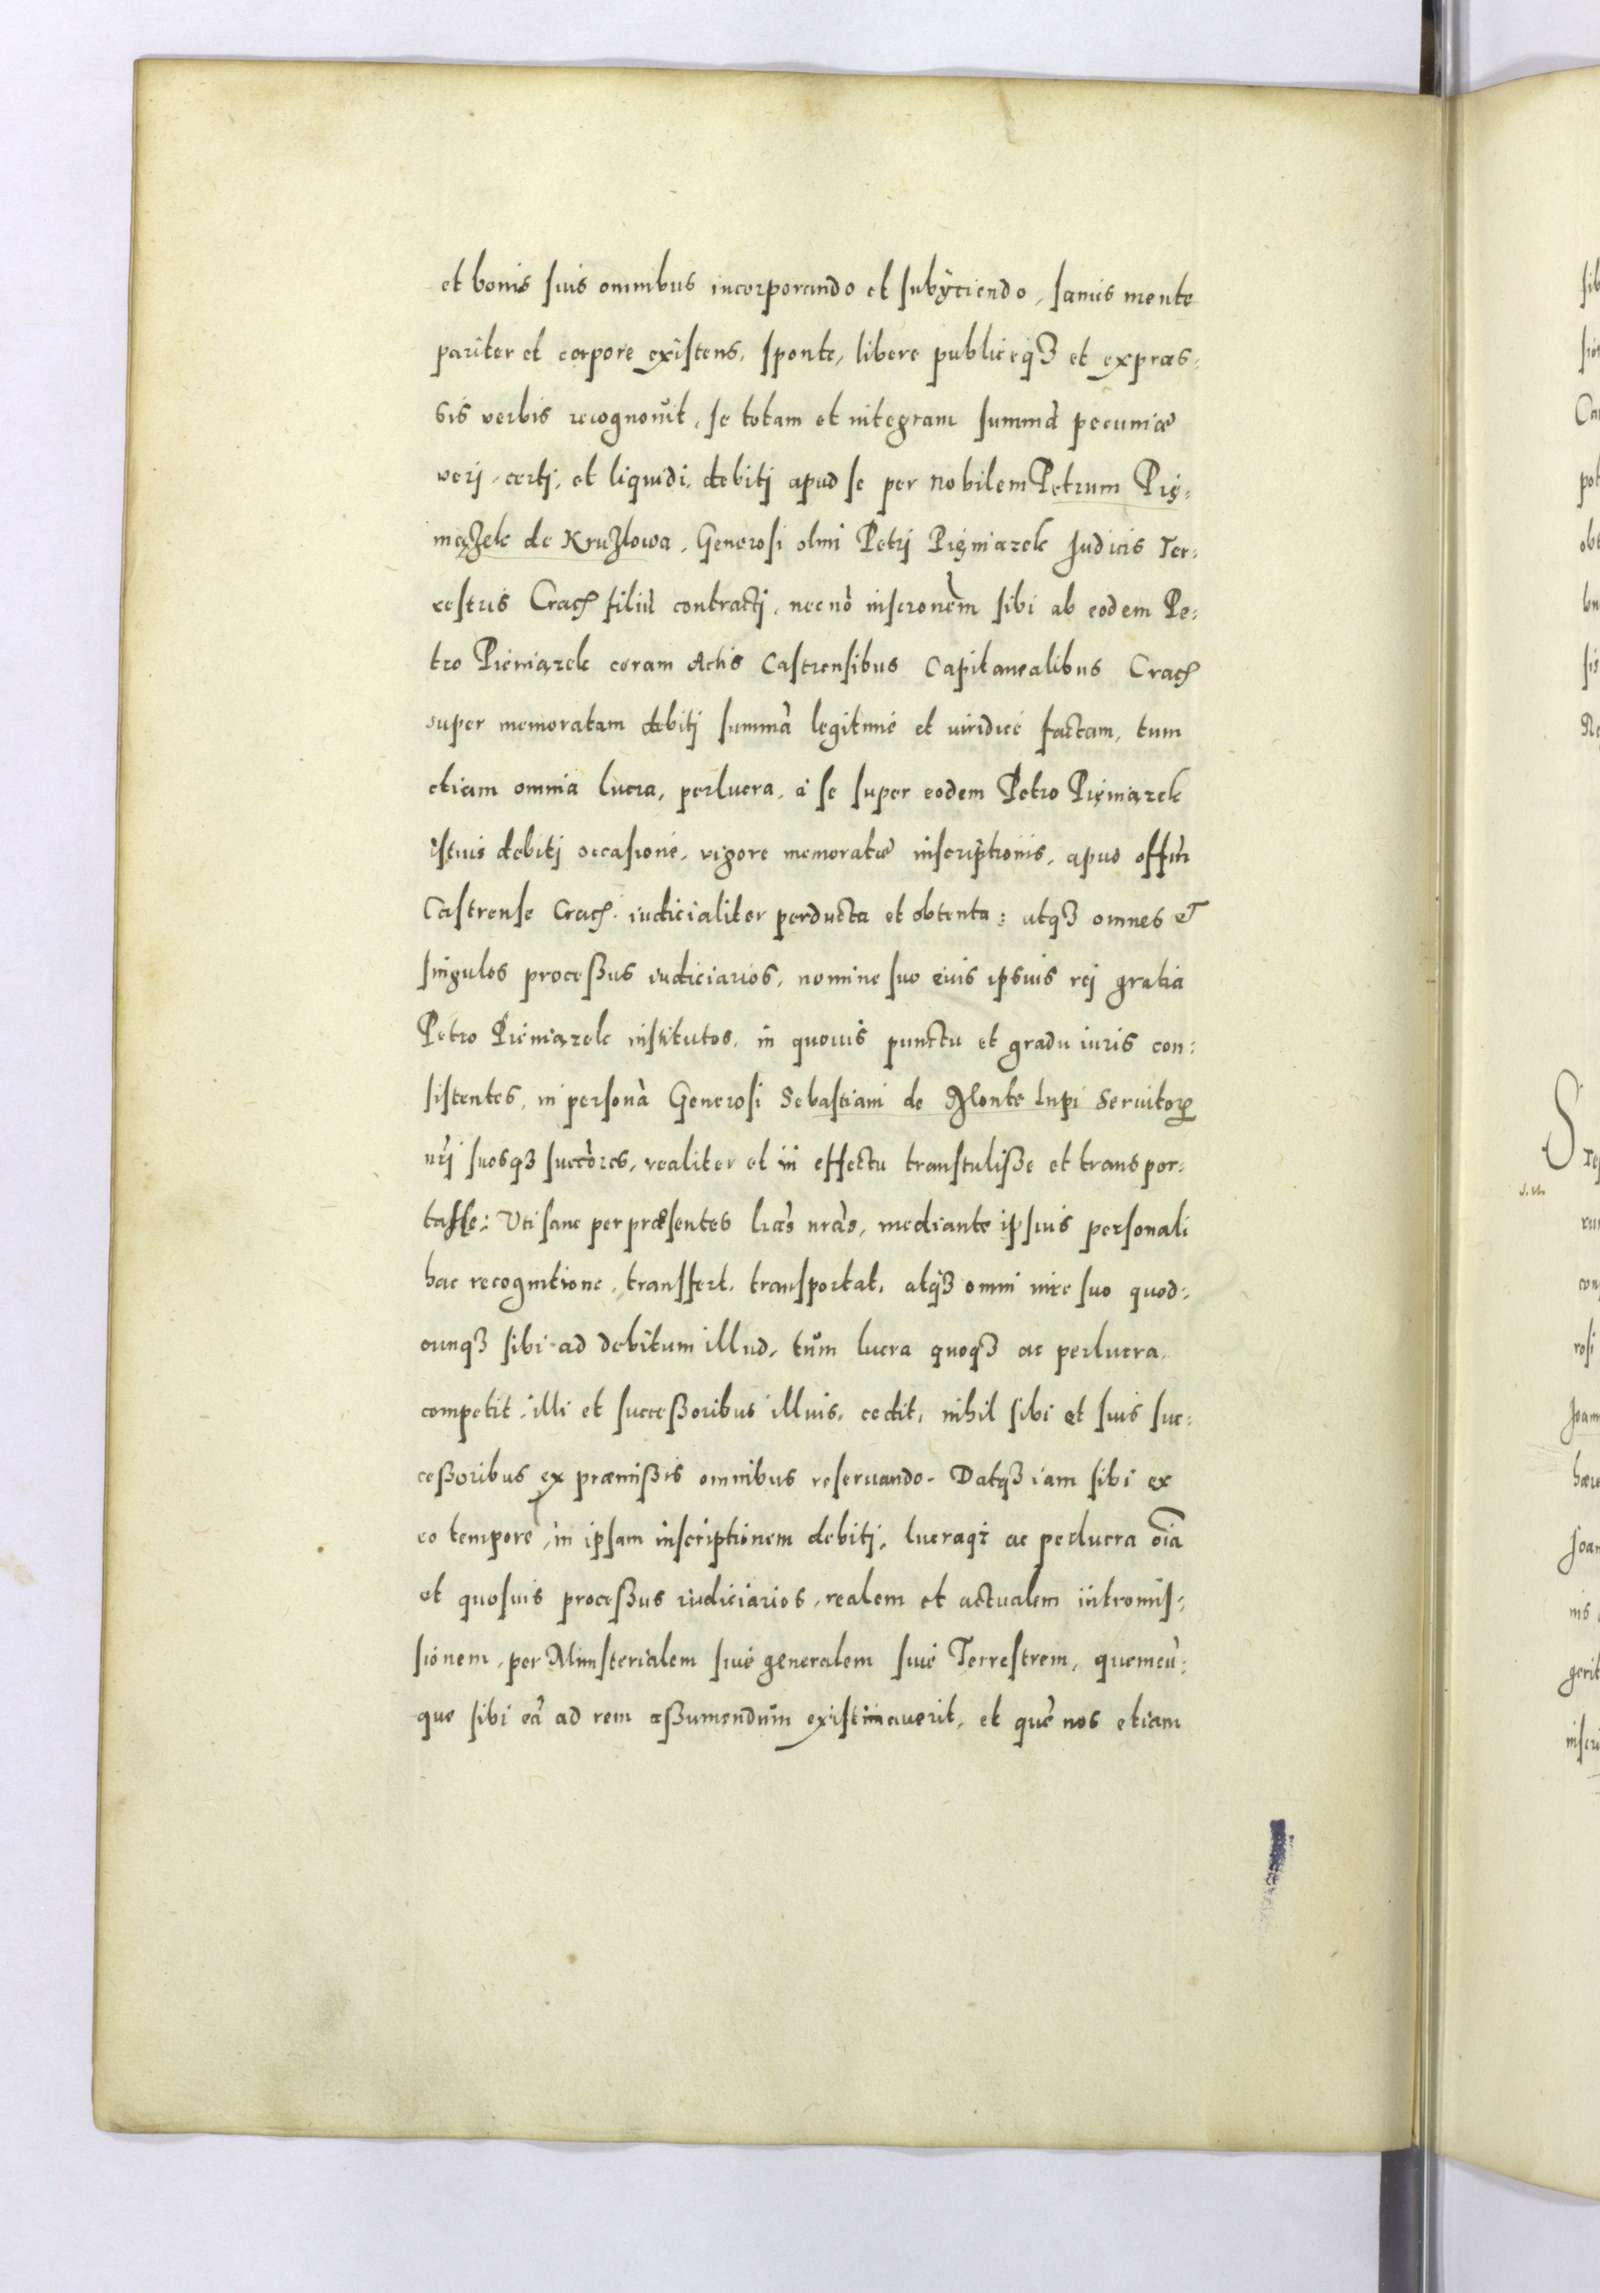 et bonis suis omnibus incorporando et subÿciendo, sanus mente
pariter et corpore existens, sponte, libere publiceqꝫ et expres:
sis verbis recognouit, se totam et integram summã pecuniæ
verj, certj, et liquidi, debitj apud se per Nobilem Petrum Pię:
niążek de Krużlowa, Generosi olmi Petrj Pięniązek Judicis Ter:
restris Crac̃ filiũ contractj, necnõ inscronẽm sibi ab eodem Pe:
tro Pieniązek coram Actis Castrensibus Capitanealibus Crac̃
super memoratam debitj summã legitime et viridice factam, tum
etiam omnia lucra, perlucra, à se super eodem Petro Pięniązek
istius debitj occasione, vigore memoratæ inscriptionis, apud offiñ
Castrense Crac̃. iudicialiter perducta et obtenta: atqꝫ omnes et
singulos proceßus iudiciarios, nomine suo eius ipsius rej gratia
Petro Pieniązek institutos, in quouis punctu et gradu iuris con:
sistentes, in personã Generosi Sebastiani de Monte Lupi Seruitoꝝ
nr̃j suosqꝫ succẽres, realiter et in effectu transtuliße et transpor:
tasse: Uti sane per præsentes lr̃as nr̃as, mediante ipsius personali
hac recognitione, transfert, transportat, atqꝫ omni iure suo quod:
cunqꝫ sibi ad debitum illud, tũm lucra quoqꝫ ac perlucra,
competit, illi et succeßoribus illius, cedit, nihil sibi et suis suc:
ceßoribus ex præmißis omnibus reseruando. Datqꝫ iam sibi ex
eo tempore, in ipsam inscriptionem debitj, lucraqꝫ ac perlucra oĩa
et quosuis proceßus iudiciarios, realem et actualem intromis:
sionem, per Ministerialem siue generalem siue Terrestrem, quemcũ:
que sibi eã ad rem aßumendũm existimauerit, et quẽ nos etiam